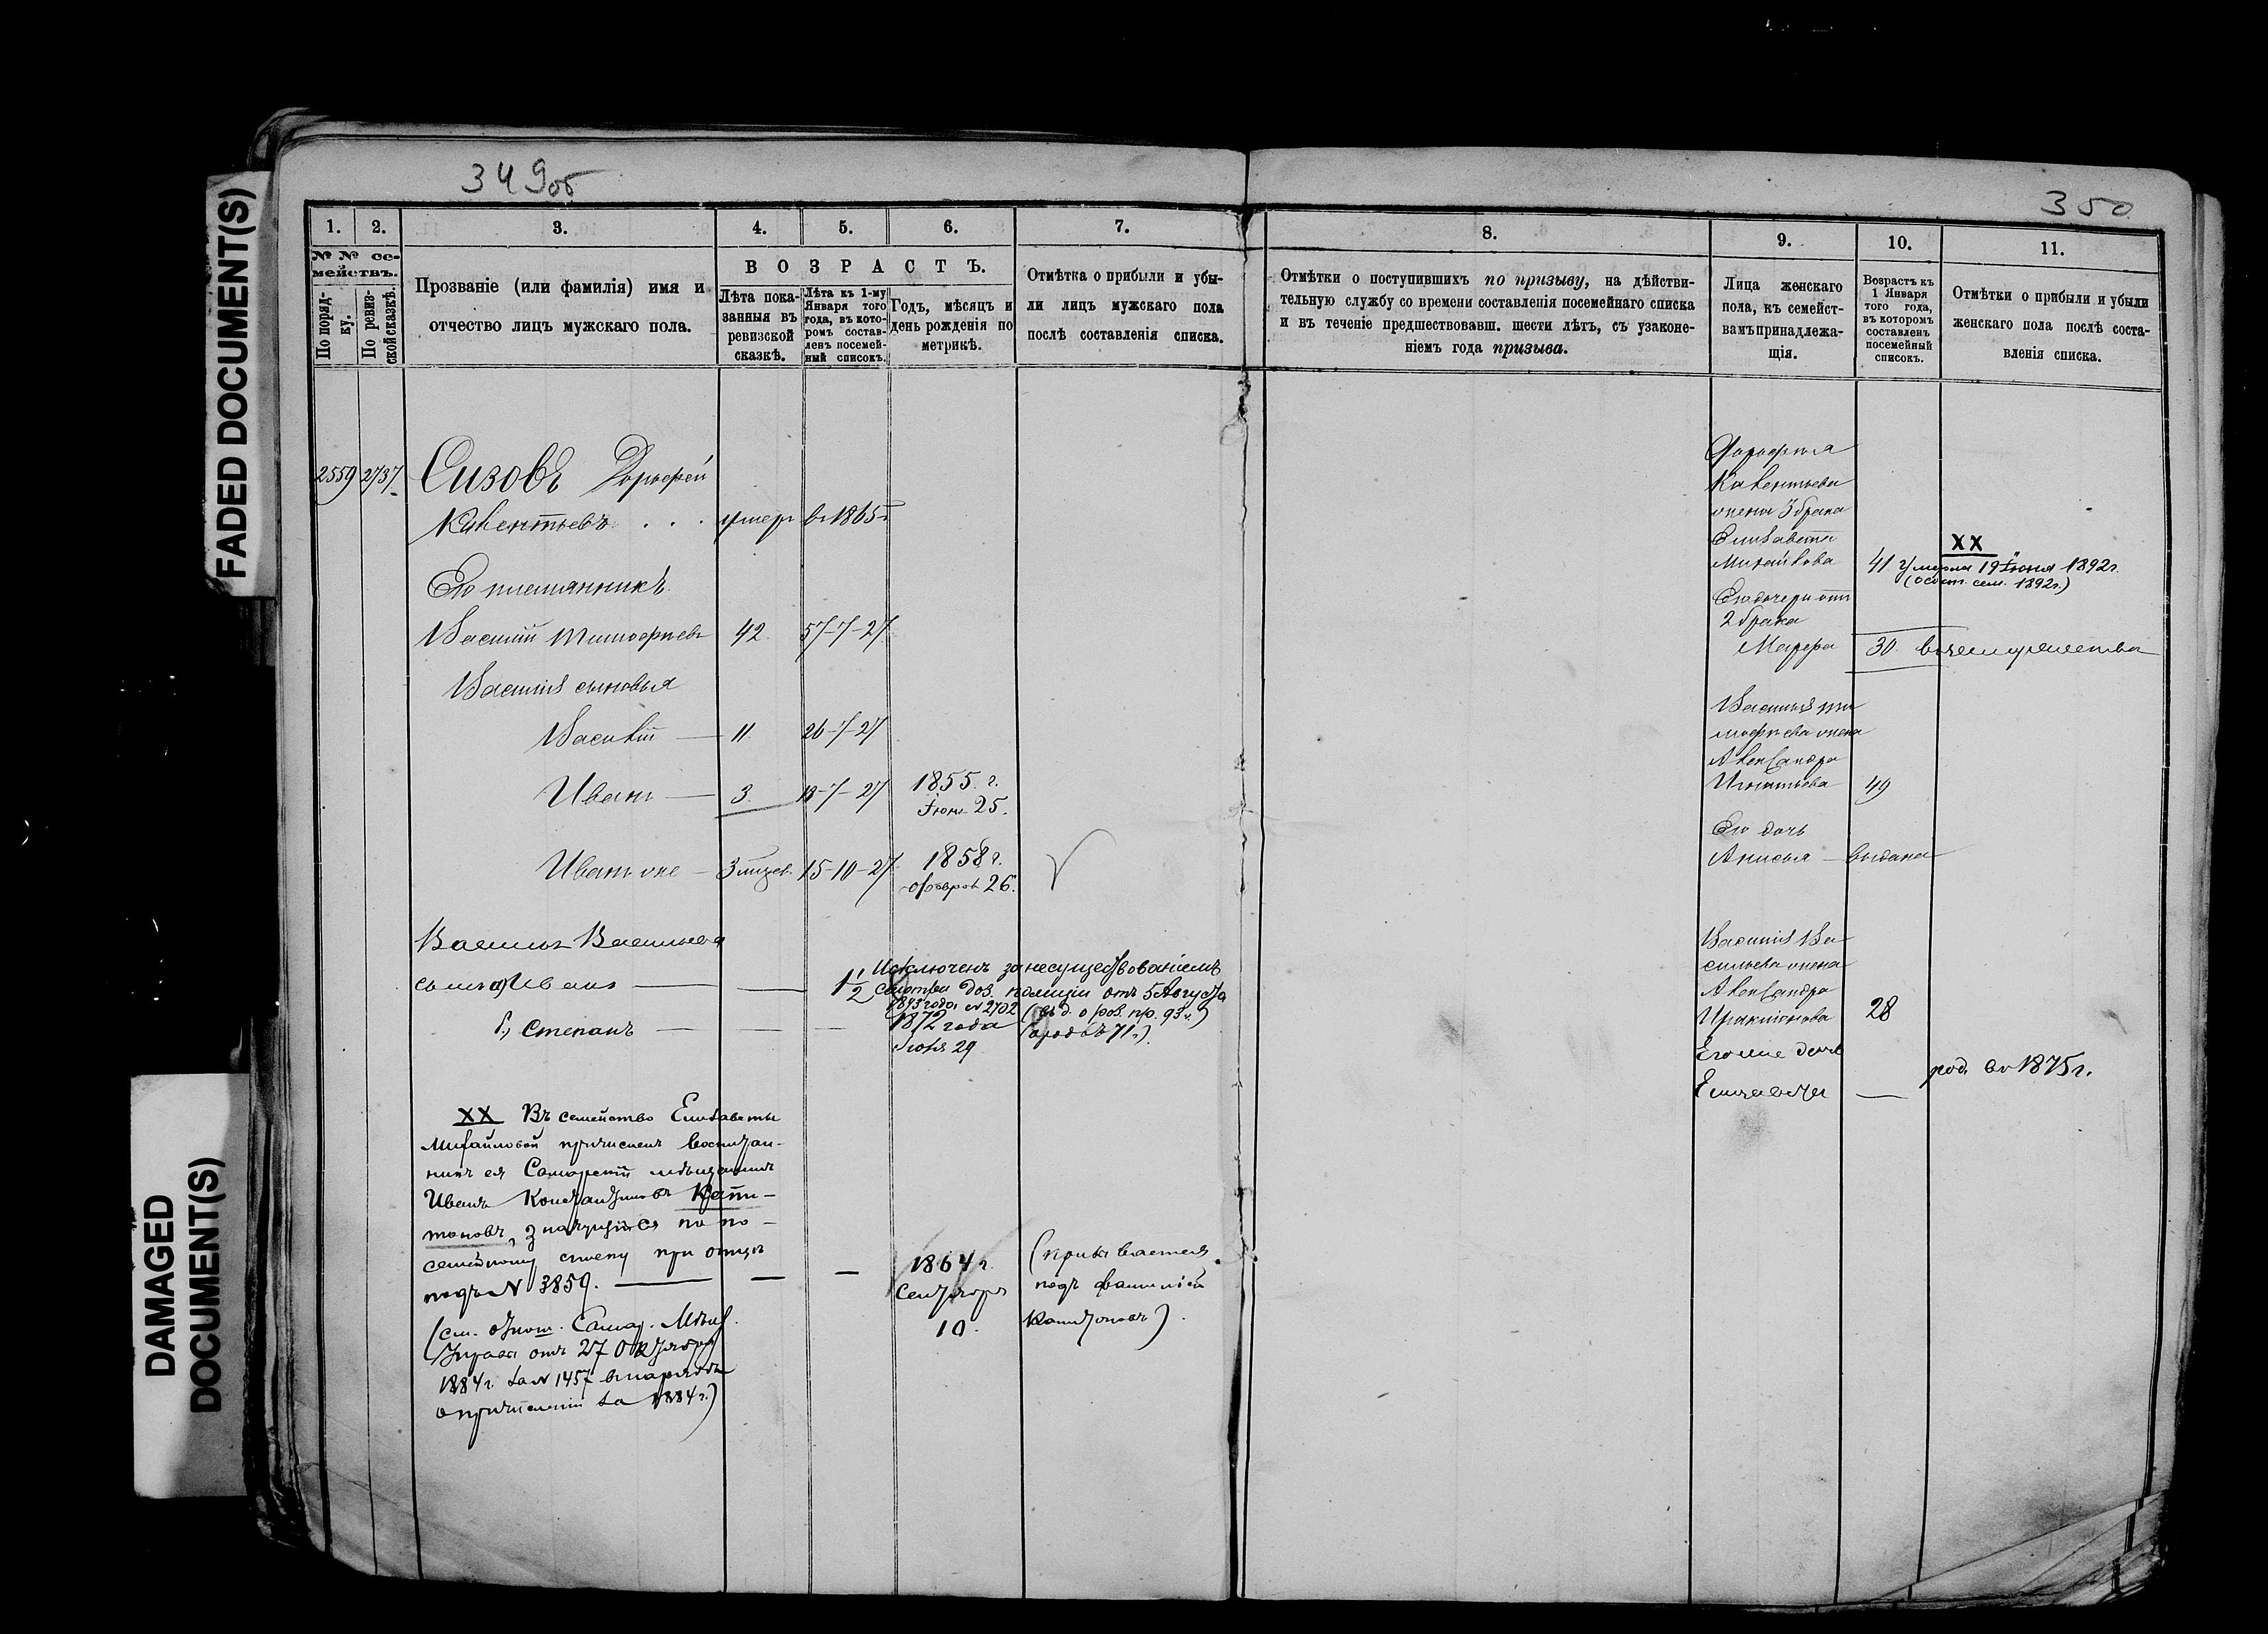 FADED DOCUMENT(S)
DAMAGED
DOCUMENT(S)
349об
350
1.
2.
3.
4.
5.
6.
7.
8.
9.
10.
11.
№ № се-
мействъ.
По поряд-
ку.
По ревиз-
ской сказкѣ.
Прозваніе (или фамилія) имя и
отчество лицъ мужскаго пола.
ВОЗРАСТЪ.
Лѣта пока-
занныя въ
ревизской
сказкѣ.
Лѣта къ 1-му
Января того
года, въ кото-
ромъ состав-
ленъ посемей-
ный списокъ.
Годъ, мѣсяцъ и
день рожденія по
метрикѣ.
Отмѣтка о прибыли и убы-
ли лицъ мужскаго пола
послѣ составленія списка.
Отмѣтки о поступившихъ по призыву, на дѣйстви-
тельную службу со времени составленія посемейнаго списка
и въ теченіе предшествовавш. шести лѣтъ, съ узаконе-
ніемъ года призыва.
Лица женскаго
пола, къ семейст-
вамъ принадлежа-
щія.
Возрастъ къ
1 Января
того года,
въ которомъ
составленъ
посемейный
списокъ.
Отмѣтки о прибыли и убыли
женскаго пола послѣ соста-
вленія списка.
2559 2737 Сизовъ Дорофей
умеръ в 1865 г
Его племянникъ
Василій Тимофѣевъ 42 57-7-27
Василія сыновья
Василій — 11 26-7-27
Иванъ — 3 18-7-27 1855 г.
Іюня 25.
Иванъ же — 3 мѣсец. 15-10-27 1858 г.
Февраля 26.
Василья Васильева
сынъ а) Иванъ — — 1½ Исключенъ за несуществованіемъ
отъ 5 Августа
1893 года № 2702
б) Степанъ — — — 1872 года
Іюля 29
XX Въ семейство Елизаветы
Михайловой причисленъ воспитан-
никъ ея Самарскій мѣщанинъ
Иванъ Константиновъ Капи-
тоновъ, значущійся по по-
семейному списку при отцѣ
подъ № 3859. — — — 1864 г.
Сентября
10.
(призывается
подъ фамиліей
Капитоновъ).
(см. отнош. Самар. Мѣщ.
Управы отъ 27 Октября
1884 г. за № 1457 въ нарядѣ
о причисленіи за 1884 г.)
Дорофея
жена 3 брака
Елизавета
Михайлова 41
XX
Умерла 19 Іюня 1892 г.
Его дочери отъ
2 брака
Марфа 30
Василья Ти-
мофѣева жена
Александра
Игнатьева 49
Его дочь
Анисья — выдана
Василія Ва-
сильева жена
Александра
28
Его же дочь
Елизавета —
род. въ 1875 г.